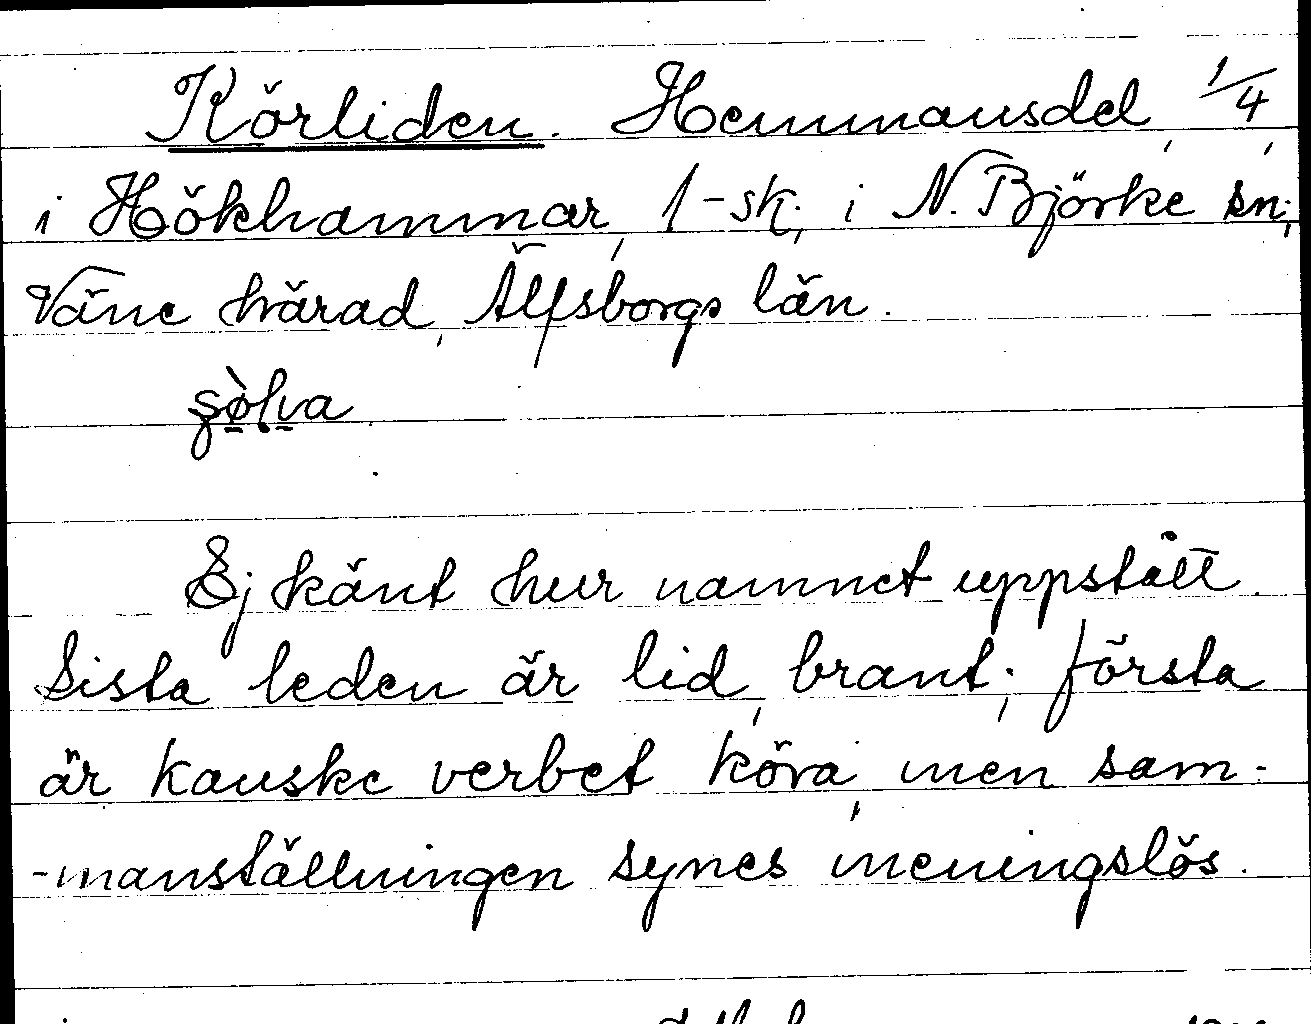 Körliden. Hemmansdel, 1/4,
i Hökhammar, 1-sk., i N. Björke sn.,
Väne härad, Älfsborgs län.
Ej känt hur namnet uppstått.
Sista leden är lid, brant; första
är kanske verbet köra, men sam-
-manställningen synes meningslös.